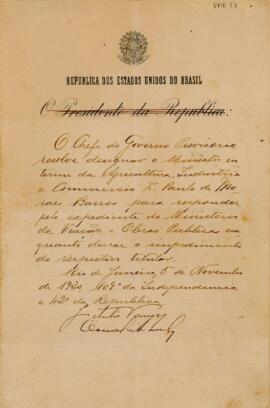 REPUBLICA DOS ESTADOS UNIDOS DO BRASIL
O Presidente da Republica:
O Chefe do Governo Provisorio
resolve designar o Ministro in
terino da Agricultura, Industria
e Commercio Paulo de Mo
raes Barros para responder
pelo expediente do Ministerio
da Viação e Obras Publicas en
quanto durar o impedimento
do respectivo titular.
Rio de Janeiro, 5 de Novembro
de 1930, 109º da Independencia
e 42º da Republica
Getulio Vargas